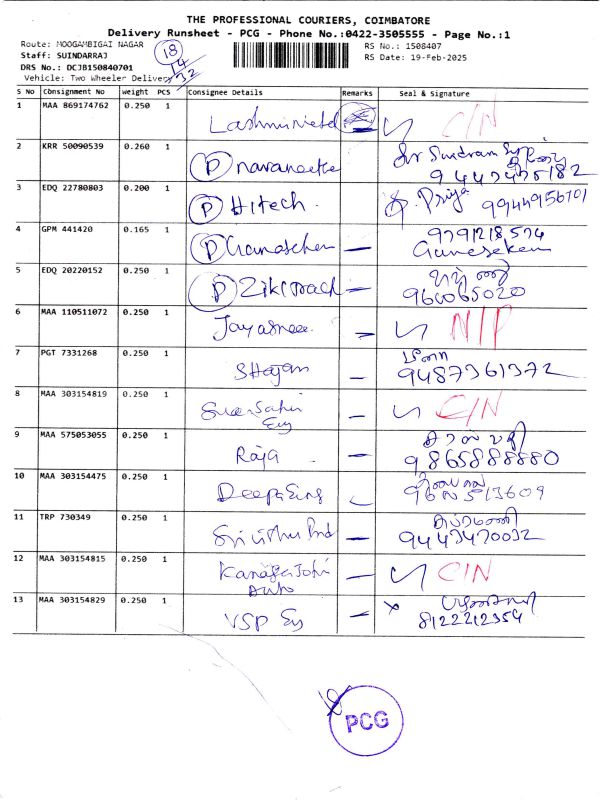 THE PROFESSIONAL COURIERS, COIMBATORE
Delivery Runsheet - PCG - Phone No.:0422-3505555 - Page No.:1
Route: MOOGAMBIGAI NAGAR
RS No.: 1508407
Staff: SUINDARRAJ
RS Date: 19-Feb-2025
DRS No.: DCJB150840701
Vehicle: Two Wheeler Delivery
18
14
32
S No Consignment No Weight PCS Consignee Details Remarks Seal & Signature
1 MAA 869174762 0.250 1 C/N
2 KRR 50090539 0.260 1 P navaneethe
3 EDQ 22780803 0.200 1 P Hitech Priya
9944956101
4 GPM 441420 0.165 1 P 9791218574
Gunaseken
5 EDQ 20220152 0.250 1 P
6 MAA 110511072 0.250 1 Jayasree N/P
7 PGT 7331268 0.250 1 Shajan மீனா
9487361372
8 MAA 303154819 0.250 1 C/N
9 MAA 575053055 0.250 1 Raja
9865888880
10 MAA 303154475 0.250 1
11 TRP 730349 0.250 1
9443470032
12 MAA 303154815 0.250 1 C/N
Auto
13 MAA 303154829 0.250 1 VSP Eng
8122212354
PCG